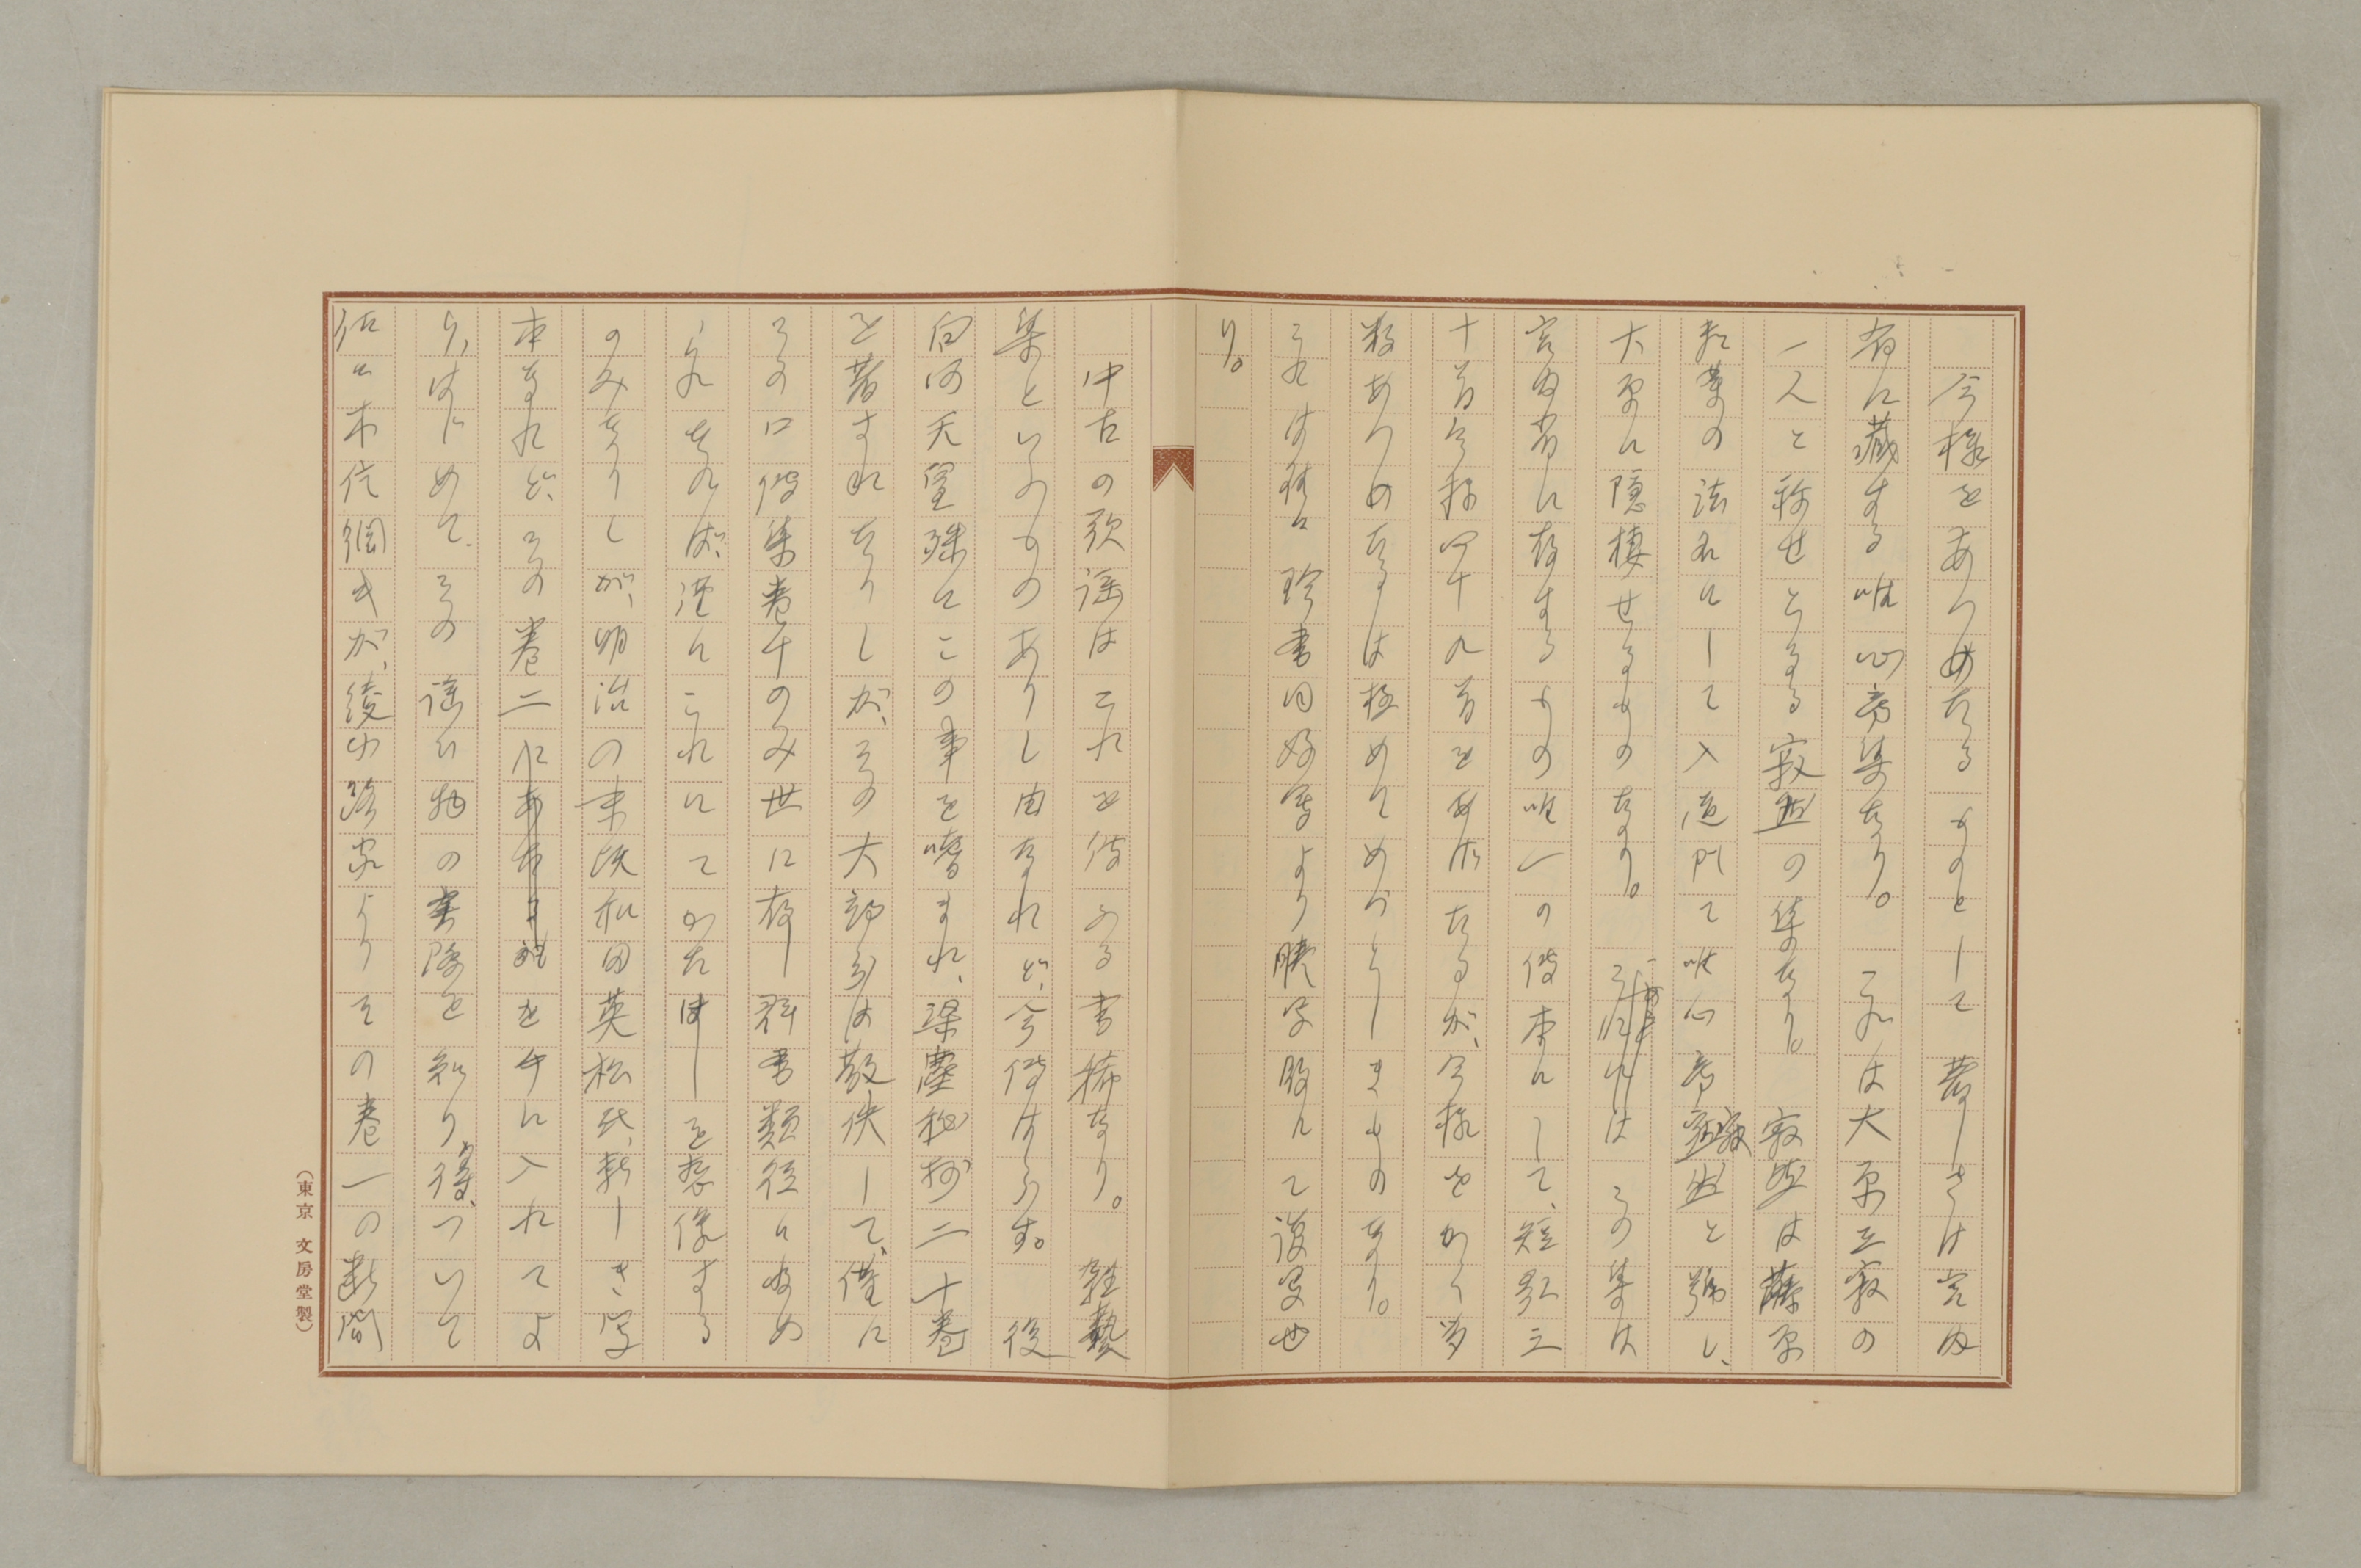 今様をあつめたるものとして著しきは宮内
省に蔵する唯心房集なり。これは大原三寂の
一人と称せらるる寂然の集なり。寂然は藤原
頼業の法名にして入道して唯心房寂然と号し、
大原に隠棲せるものなり。この集は
宮内省に存するもの唯一の伝本にして、短歌三
十首今様四十九首をあげたるが、今様をかく多
数あつめたるは極めてめづらしきものなり。
これは珍書同好会より謄写版にて複写せ
り。
中古の歌謡はこれを伝ふる書稀なり。雑芸
集といふものありし由なれど、今伝はらず。後
白河天皇殊にこの事を嗜まれ、梁塵秘抄二十巻
を著されたりしが、その大部分は散佚して、僅に
その口伝集巻十のみ世に存し群書類従に収め
られたれば、漸くこれにてかたはしを想像する
のみなりしが、明治の末頃和田英松氏、新しき写
本なれど、その巻二を手に入れてよ
り、はじめて、その謡ひ物の実際を知り得、ついで
佐々木信綱氏が、綾小路家よりその巻一の断簡
(東京 文房堂製)